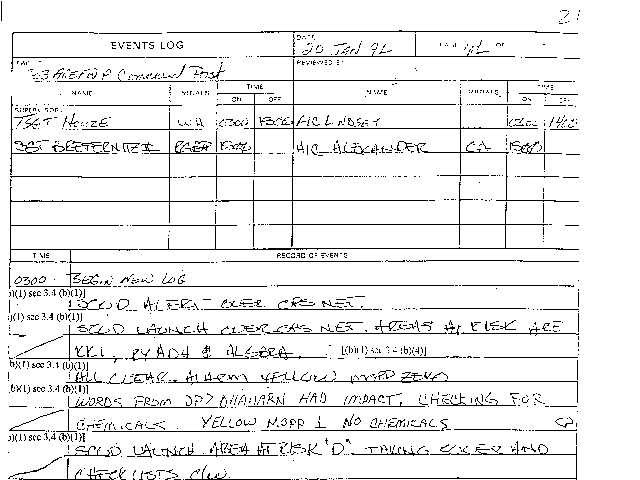 21
EVENTS LOG
DATE
20 JAN 91
PAGE OF
UNIT
Command Post
REVIEWED BY
NAME INITIALS TIME NAME INITIALS TIME
ON OFF ON OFF
SUPERVISOR
TSGT HOUZE WH 0300 1300 A1C LINDSEY 0300
SGT 1300 A1C ALEXANDER CA 1500
TIME RECORD OF EVENTS
0300 BEGIN NEW LOG
b)(1) sec 3.4 (b)(1)]
SCUD ALERT OVER CAS NET.
)(1) sec 3.4 (b)(1)]
SCUD LAUNCH OVER CAS NET. AREAS AT RISK ARE
KKI, RYADH &
[(b)(1) sec 3.4 (b)(4)]
b)(1) sec 3.4 (b)(1)]
ALL CLEAR. ALARM YELLOW MOPP ZERO
(b)(1) sec 3.4 (b)(1)]
WORDS FROM DHAHARN HAD IMPACT, CHECKING FOR
CHEMICALS. YELLOW MOPP 1 NO CHEMICALS
b)(1) sec 3.4 (b)(1)]
SCUD LAUNCH AREA AT RISK "D". TAKING COVER AND
CHECKLISTS